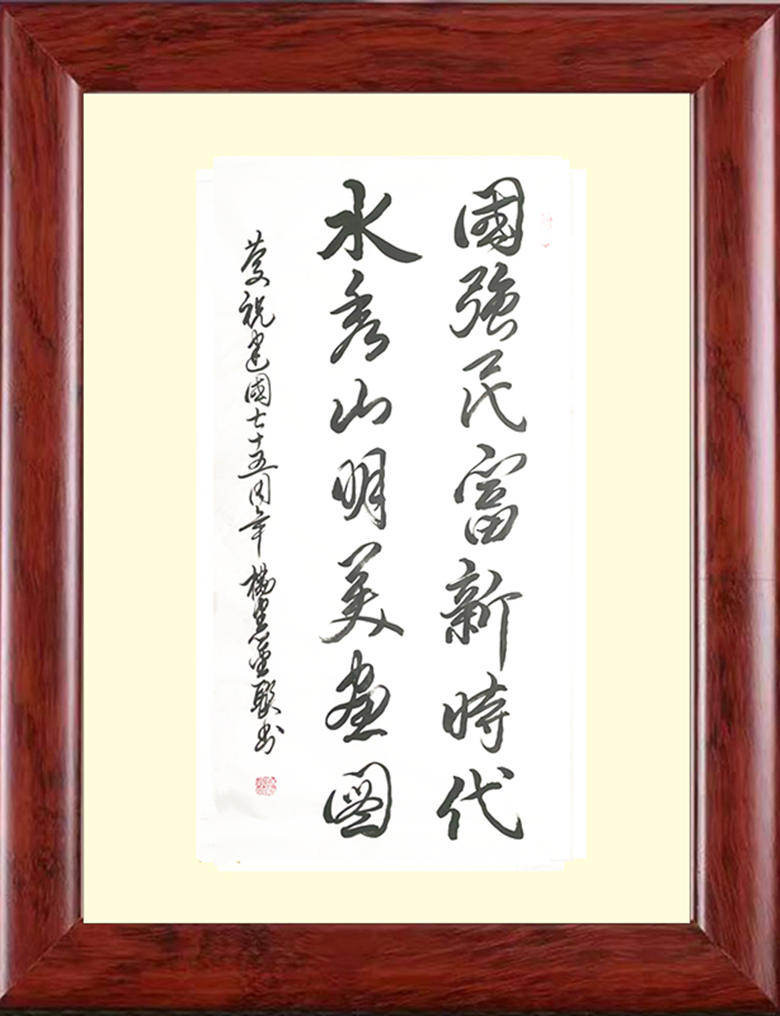 國強民富新時代
水秀山明美畫圖
慶祝建國七十五周年 楊 聯书